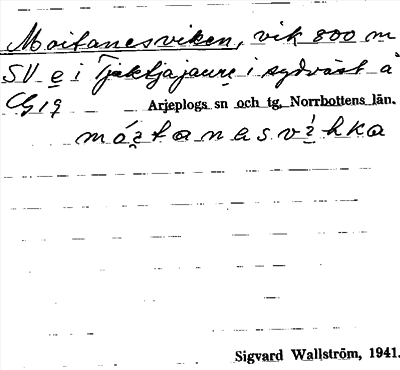 Moitanesviken, vik 800 m
SV e i Tjaktjajaure i sydväst å
CG 19 Arjeplogs sn och tg, Norrbottens län.
Sigvard Wallström, 1941.